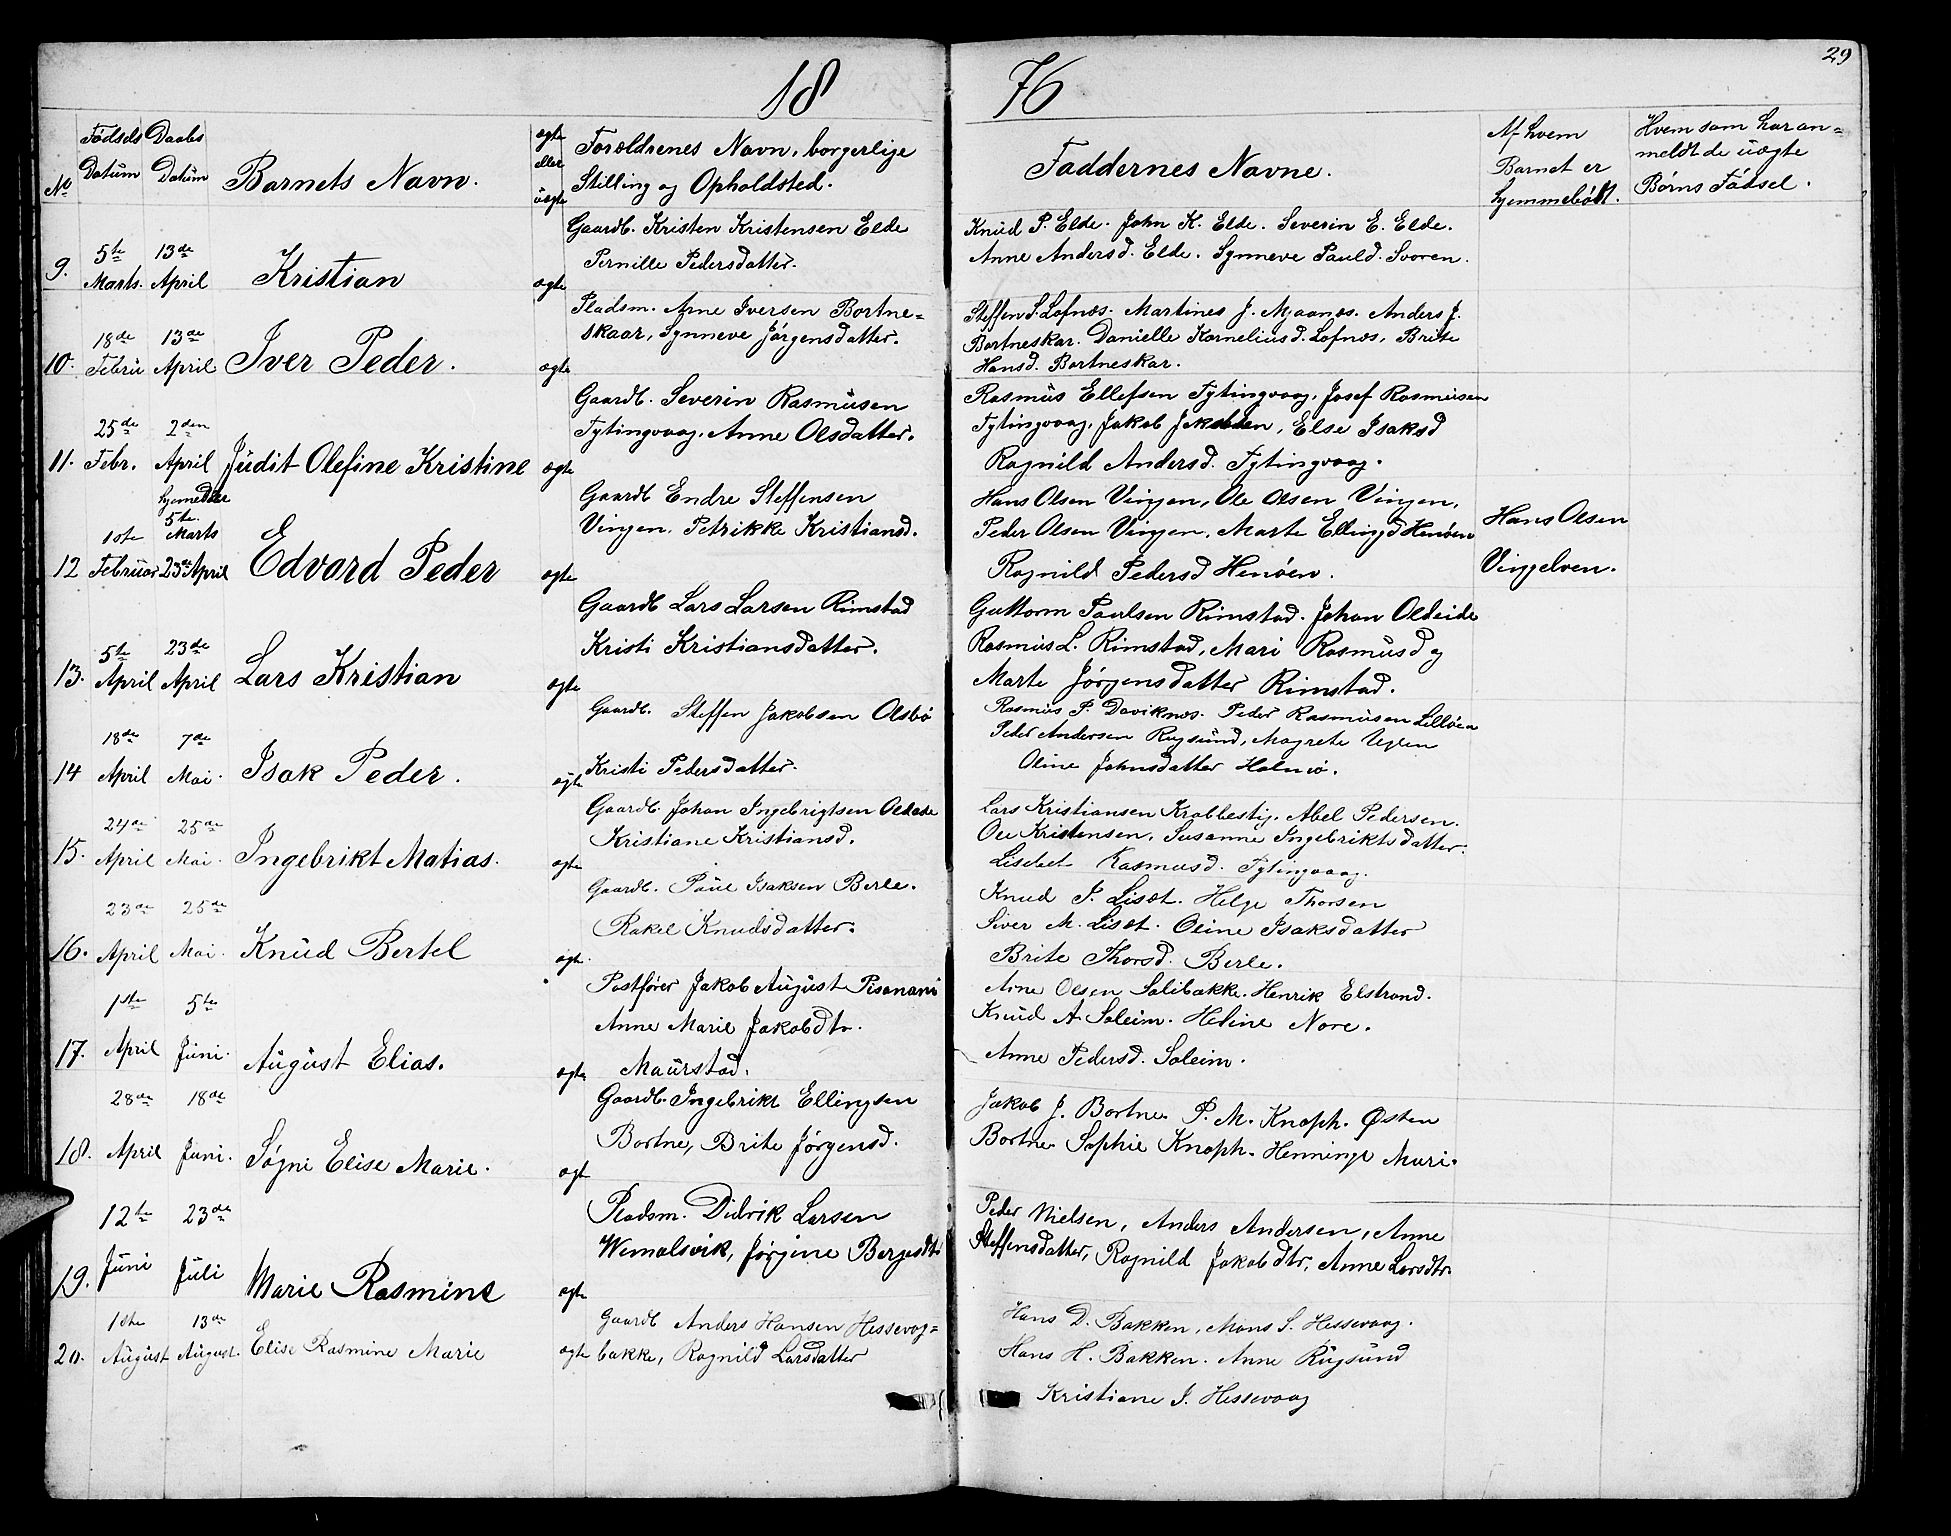 18 76
29
No
Fødsels Datum
Daabs Datum
Barnets Navn.
ægte eller uægte
Forældrenes Navn, borgerlige
Stilling og Opholdsted.
Faddernes Navne.
Af hvem
Barnet er
hjemmedøbt.
Hvem som har an=
meldt de uægte
Børns Fødsel.
9. 5te Marts. 13de April Kristian ægte
Gaardb. Kristen Kristensen Elde
Pernille Pedersdatter.
Knud P. Elde. John K. Elde. Severin E. Elde.
Anne Andersd. Elde. Synneve Pauld. Svoren.
10. 18de Febru 13de April Iver Peder. ægte
Pladsm. Arne Iversen Bortne=
skaar, Synneve Jørgensdatter.
Steffen S. Lofnæs. Martines J. Mjaanæs. Anders J.
Bortneskar. Danielle Korneliusd. Lofnæs, Brite
Hansd. Bortneskar.
11. 25de Febr. 2den April Judit Olefine Kristine ægte
Gaardb. Severin Rasmusen
Tytingvaag. Anne Olsdatter.
Rasmus Ellefsen Tytingvaag, Josef Rasmusen
Tytingvaag, Jakob Jakobsen, Else Isaksd
Ragnild Andersd. Tytingvaag.
12 1ste Februar hjemedøbt 5te Marts 23de April Edvard Peder ægte
Gaardb Endre Steffensen
Vingen. Petrikke Kristiansd.
Hans Olsen Vingen, Ole Olsen Vingen,
Peder Olsen Vingen, Marte Ellingsd Henøen
Ragnild Pedersd Henøen.
Hans Olsen
Vingelven.
13. 5te April 23de April Lars Kristian ægte
Gaardb Lars Larsen Rimstad
Kristi Kristiansdatter.
Guttorm Paulsen Rimstad. Johan Oldeide
Rasmus L. Rimstad, Mari Rasmusd og
Marte Jørgensdatter Rimstad.
14 18de April 7de Mai. Isak Peder. ægte
Gaardb. Steffen Jakobsen Olsbø
Kristi Pedersdatter.
Rasmus P. Daviknæs. Peder Rasmusen Lilløen
Peder Andersen Rugsund, Magrete
Oline Johnsdatter Holmø.
15. 24de April 25de Mai. Ingebrikt Matias. ægte
Gaardb. Johan Ingebrigtsen Oldeide
Kristiane Kristiansd.
Lars Kristiansen Krabbestig. Abel Pedersen.
Ole Kristensen. Susanne Ingebriktsdatter.
Lisebet Rasmusd. Tytingvaag.
16. 23de April 25de Mai. Knud Bertel ægte.
Gaardb. Paul Isaksen Berle.
Rakel Knudsdatter.
Knud P. Liset. Helge Thorsen
Siver M. Liset. Oline Isaksdatter
Brite Thorsd. Berle.
17. 1ste April 5te Juni. August Elias. ægte
Postfører Jakob August Pisanani
Anne Marie Jakobdtr.
Maurstad.
Arne Olsen Salibakke. Henrik Elstrand.
Knud A. Soleim. Heline Nore.
Anne Pedersd. Soleim.
18. 28de April 18de Juni. Søgni Elise Marie. ægte
Gaardb. Ingebrikt Ellingsen
Bortne, Brite Jørgensd.
Jakob J. Bortne. P. M. Knoph. Østen
Bortne. Sophie Knoph. Henninge Mari.
19. 12te Juni 23de Juli Marie Rasmine ægte
Pladsm. Didrik Larsen
Wemelsvik, Jørgine Bergesdtr
Peder Nielsen, Anders Andersen, Anne
Steffensdatter, Ragnild Jakobdtr, Anne Larsdtr.
20. 1ste August 13de August. Elise Rasmine Marie ægte
Gaardb Anders Hansen Hessevag=
bakke, Ragnild Larsdatter
Hans D. Bakken, Mons S. Hessevaag.
Hans H. Bakken. Anne Rugsund
Kristiane J. Hessevaag